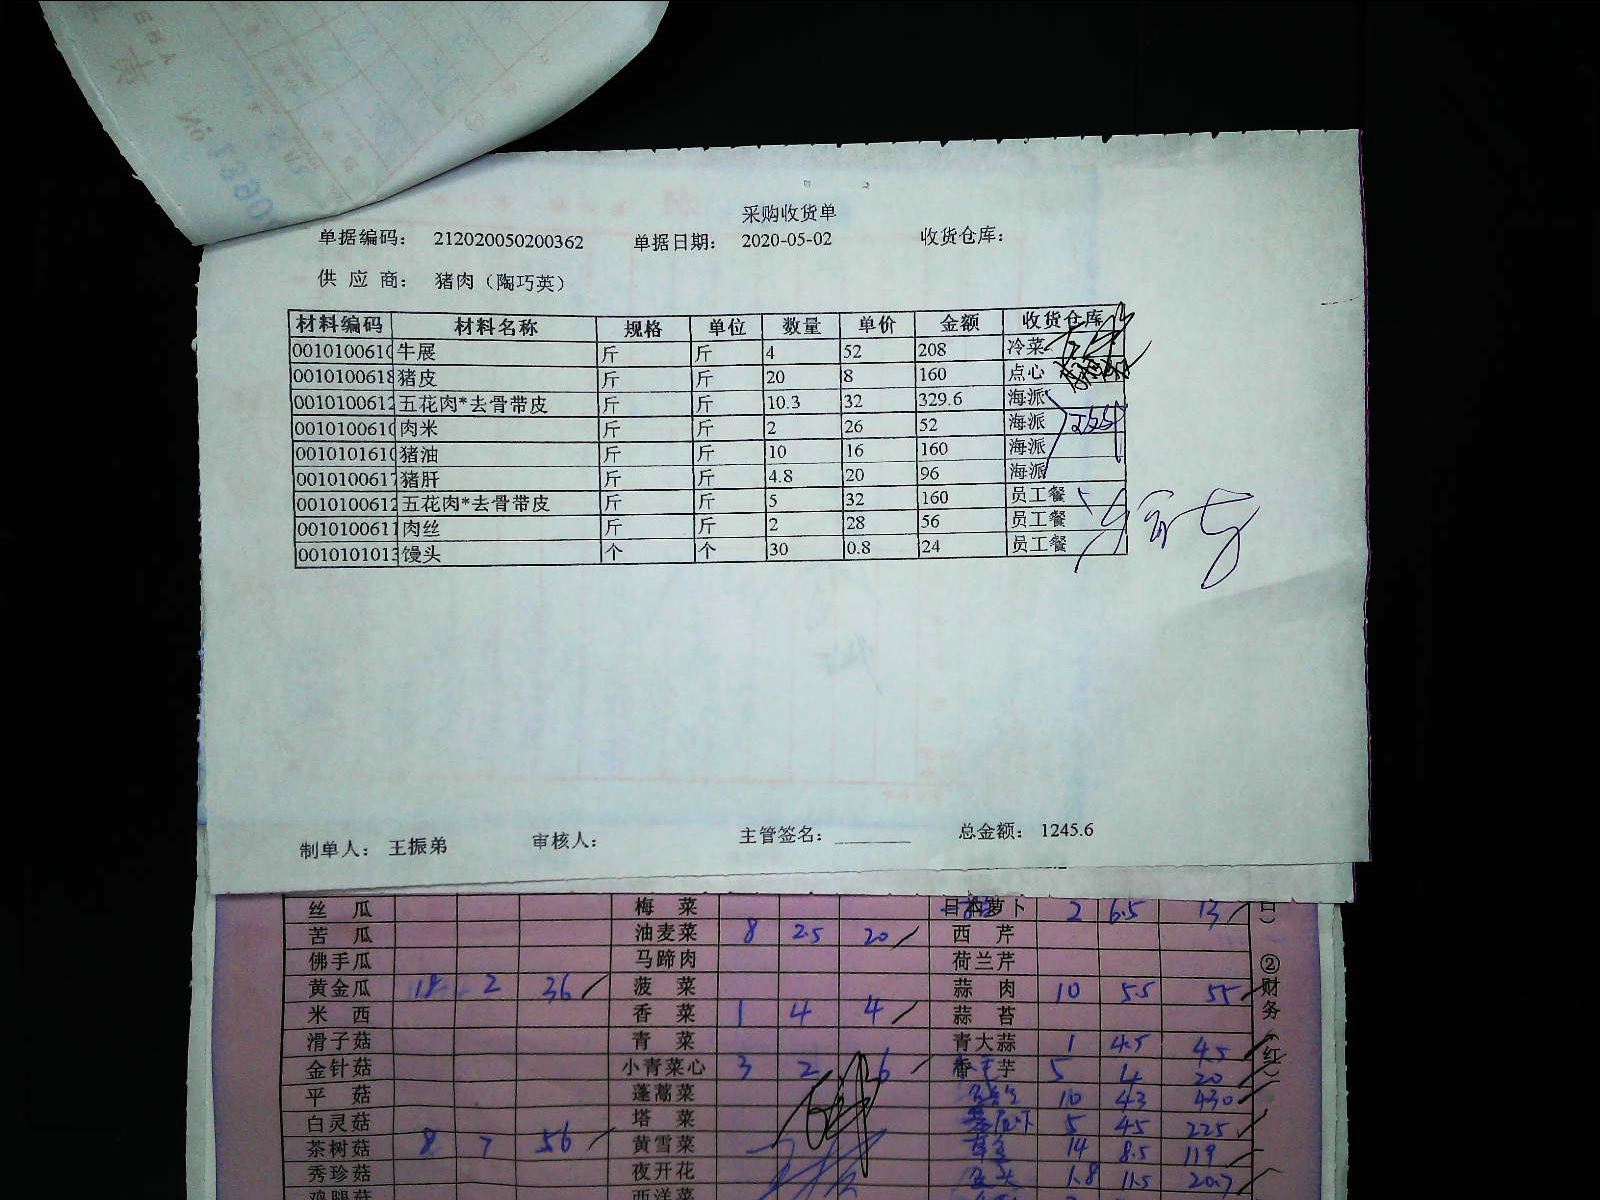 采购收货单
单据编码： 212020050200362 单据日期： 2020-05-02 收货仓库：
供 应 商： 猪肉（陶巧英）
材料编码 材料名称 规格 单位 数量 单价 金额 收货仓库
0010100610 牛展 斤 斤 4 52 208 冷菜
0010100618 猪皮 斤 斤 20 8 160 点心
0010100612 五花肉*去骨带皮 斤 斤 10.3 32 329.6 海派
0010100610 肉米 斤 斤 2 26 52 海派
0010101610 猪油 斤 斤 10 16 160 海派
0010100617 猪肝 斤 斤 4.8 20 96 海派
0010100612 五花肉*去骨带皮 斤 斤 5 32 160 员工餐
0010100611 肉丝 斤 斤 2 28 56 员工餐
0010101013 馒头 个 个 30 0.8 24 员工餐
制单人： 王振弟 审核人： 主管签名： 总金额： 1245.6
丝 瓜 梅 菜 2 6.5 13
苦 瓜 油麦菜 8 2.5 20 西 芹
佛手瓜 马蹄肉 荷兰芹
黄金瓜 18 2 36 菠 菜 蒜 肉 10 5.5 55
米 西 香 菜 1 4 4 蒜 苔
滑子菇 青 菜 青大蒜 1 4.5 4.5
金针菇 小青菜心 3 2 6 香 芋 5 4 20
平 菇 蓬蒿菜 10 43 430
白灵菇 塔 菜 5 45 225
茶树菇 8 7 56 黄雪菜 14 8.5 119
秀珍菇 夜开花 1.8 11.5 20.7
鸡腿菇 西洋菜
②财务（红）